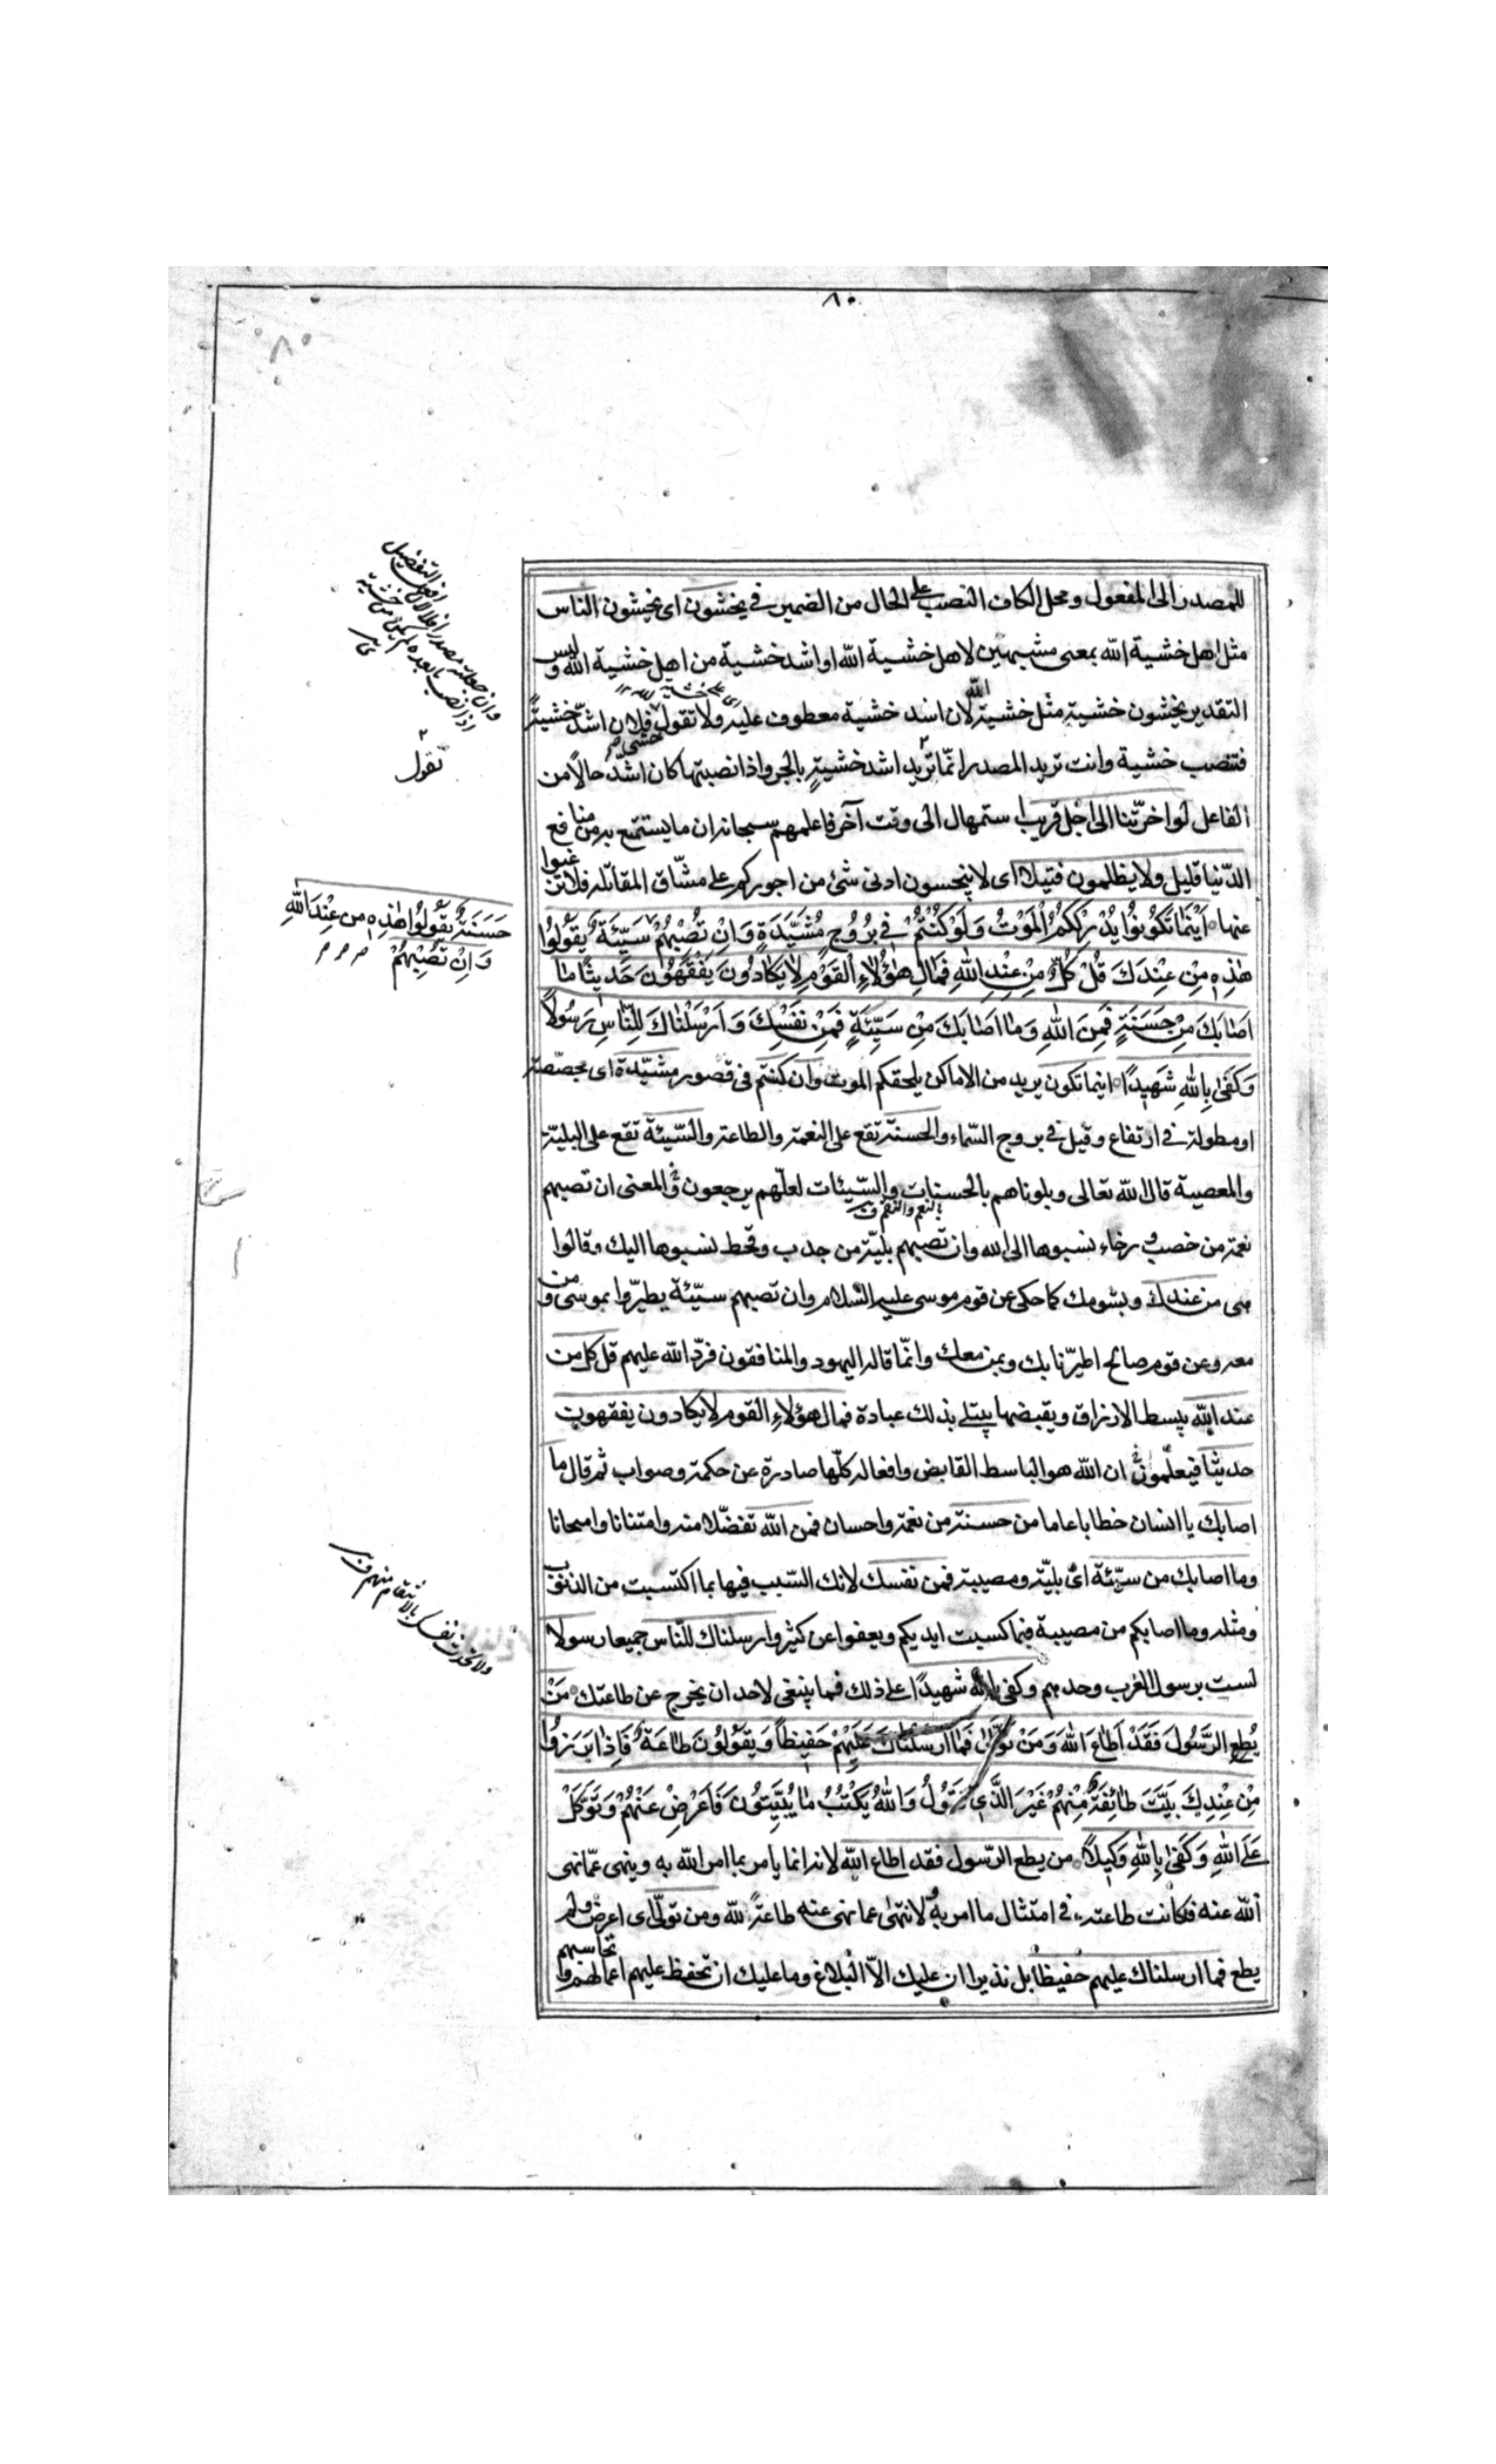 ٨٠
٨٠
للمصدر الى المفعول ومحل الكاف النصب على الحال من الضمير في يخشون اى يخشون الناس
مثل اهل خشية الله بمعنى مشبهين لاهل خشية الله او اشد خشية من اهل خشية الله وليس
التقدير يخشون خشية مثل خشية الله لان اشد خشية معطوف عليه ولا تقول فلان اشدّ خشيةً
فتنصب خشية وانت تريد المصدر انّما تريد اشد خشيةٍ بالجر واذا نصبتها كان اشدّ حالاً من
الفاعل لولا اخرّتنا الى اجل قريب استمهال الى وقت آخر فاعلمهم سبحانه ان ما يستمتع به من منافع
الدّنيا قليل ولا يظلمون فتيلا اى لا ينجسون ادنى شئ من اجوركم على مشّاق المقاتله فلا ترغبوا
عنها اَيْنَمَا تَكُونُوا يُدْرِكْكُمُ الْمَوْتُ وَلَوْ كُنْتُمْ فِي بُرُوجٍ مُشَيَّدَةٍ وَاِنْ تُصِبْهُمْ سَيِّئَةٌ يَقُولُوا
هٰذِهِ مِنْ عِنْدِكَ قُلْ كُلٌّ مِنْ عِنْدِ اللّٰهِ فَمَالِ هٰؤُلَاءِ الْقَوْمِ لَا يَكَادُونَ يَفْقَهُونَ حَدِيثًا مَا
اَصَابَكَ مِنْ حَسَنَةٍ فَمِنَ اللّٰهِ وَمَا اَصَابَكَ مِنْ سَيِّئَةٍ فَمِنْ نَفْسِكَ وَاَرْسَلْنَاكَ لِلنَّاسِ رَسُولاً
وَكَفٰى بِاللّٰهِ شَهِيدًا اينما تكون يريد من الاماكن يلحقكم الموت وان كنتم فى قصور مشيّدة اى مجصّصة
او مطولة في ارتفاع وقيل في بروج السّماء والحسنة تقع على النعمة والطاعة والسّيئة تقع على البليّة
والمعصية قال الله تعالى وبلوناهم بالحسنات والسّيئات لعلّهم يرجعون والمعنى ان تصبهم
نعمة من خصب ورخاء نسبوها الى الله وان تصبهم بليّة من جدب وقحط نسبوها اليك وقالوا
هى من عندك وبشومك كما حكى عن قوم موسى عليه السّلام وان تصبهم سيّئة يطيرّوا بموسى ومن
معه وعن قوم صالح اطيرّنا بك وبمن معك وانّما قاله اليهود والمنافقون فردّ الله عليهم قل كل من
عند الله يبسط الارزاق ويقبضها يبتلى بذلك عباده فمال هؤلاء القوم لا يكادون يفقهون
حديثا فيعلّمون ان الله هو الباسط القابض وافعاله كلّها صادرة عن حكمة وصواب ثم قال ما
اصابك يا انسان خطابا عاما من حسنة من نعمة واحسان فمن الله تفضّلا منه وامتنانا وامتحانا
وما اصابك من سيّئة اى بليّة ومصيبة فمن نفسك لانك السّبب فيها بما اكتسبت من الذنوب
ومثله وما اصابكم من مصيبة فبما كسبت ايديكم ويعفوا عن كثير وارسلناك للنّاس جميعا رسولا
لست برسول العرب وحدهم وكفى بالله شهيدًا على ذلك فما ينبغى لاحد ان يخرج عن طاعتك مَنْ
يُطِعِ الرَّسُولَ فَقَدْ اَطَاعَ اللّٰهَ وَمَنْ تَوَلّٰى فَمَا اَرْسَلْنَاكَ عَلَيْهِمْ حَفِيظًا وَيَقُولُونَ طَاعَةٌ فَاِذَا بَرَزُوا
مِنْ عِنْدِكَ بَيَّتَ طَائِفَةٌ مِنْهُمْ غَيْرَ الَّذِي تَقُولُ وَاللّٰهُ يَكْتُبُ مَا يُبَيِّتُونَ فَاَعْرِضْ عَنْهُمْ وَتَوَكَّلْ
عَلَى اللّٰهِ وَكَفٰى بِاللّٰهِ وَكِيلاً من يطع الرّسول فقد اطاع الله لانه انما يأمر بما امر الله به وينهى عمّا نهى
الله عنه فكانت طاعته في امتثال ما امر به والانتهاء عما نهى عنه طاعةً لله ومن تولّى اى اعرض ولم
يطع فما ارسلناك عليهم حفيظا بل نذيرا ان عليك الاّ البلاغ وما عليك ان تحفظ عليهم اعمالهم وتحاسبهم
بالنعم والنقم
تقول
حَسَنَةٌ يَقُولُوا هٰذِهِ مِنْ عِنْدِ اللّٰهِ
وَاِنْ تُصِبْهُمْ